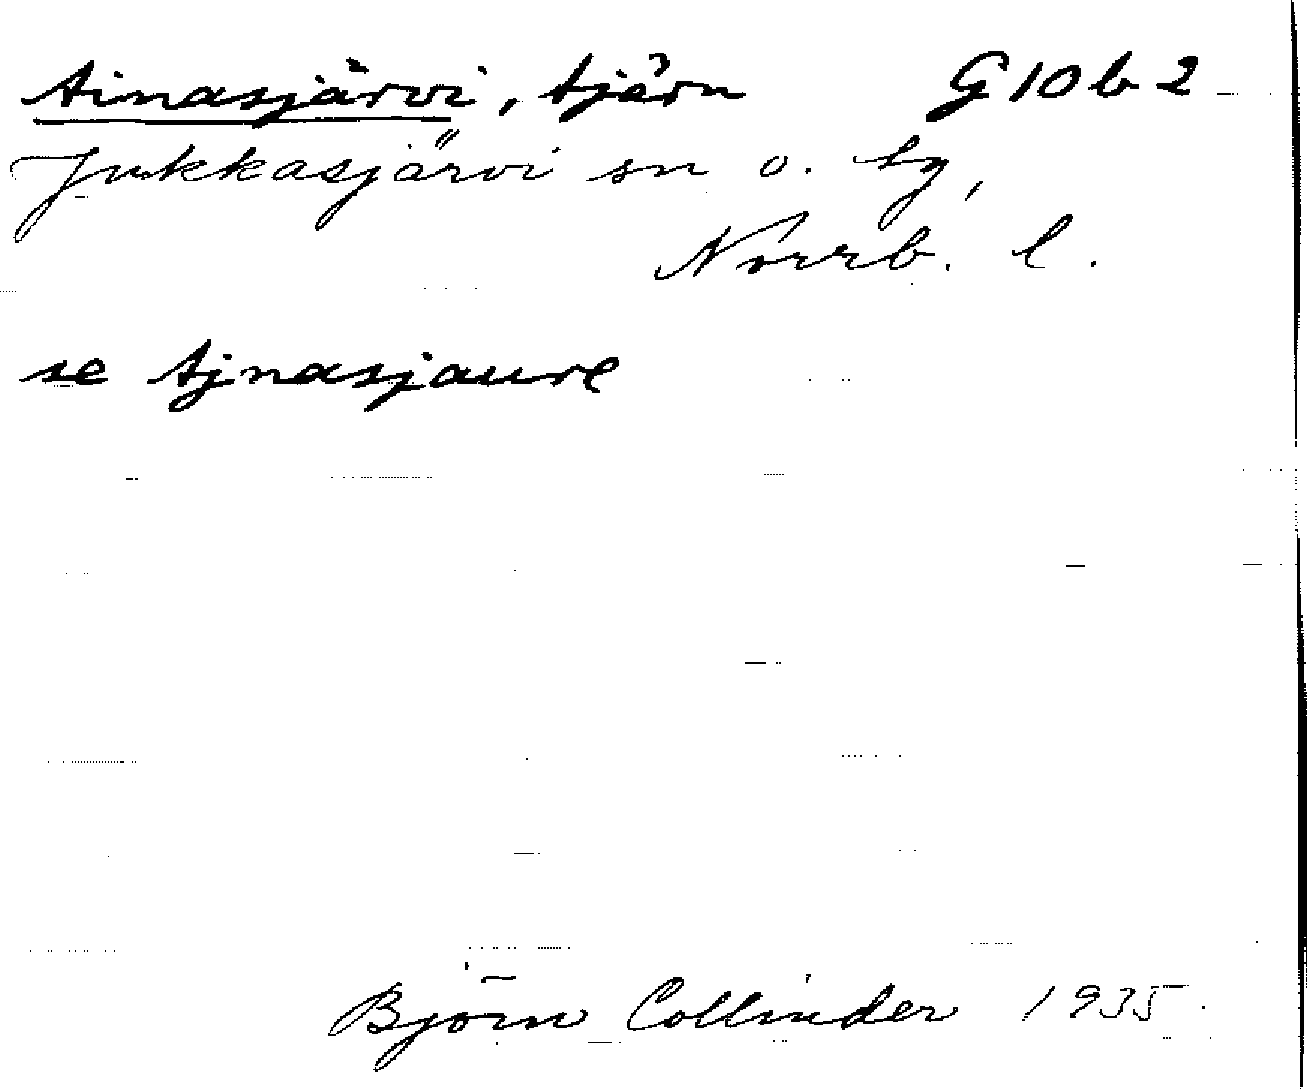 Ainasjärvi, tjärn G 10 b 2
Jukkasjärvi sn o. tg,
Norrb. l.
se Ajnasjaure
Björn Collinder 1935